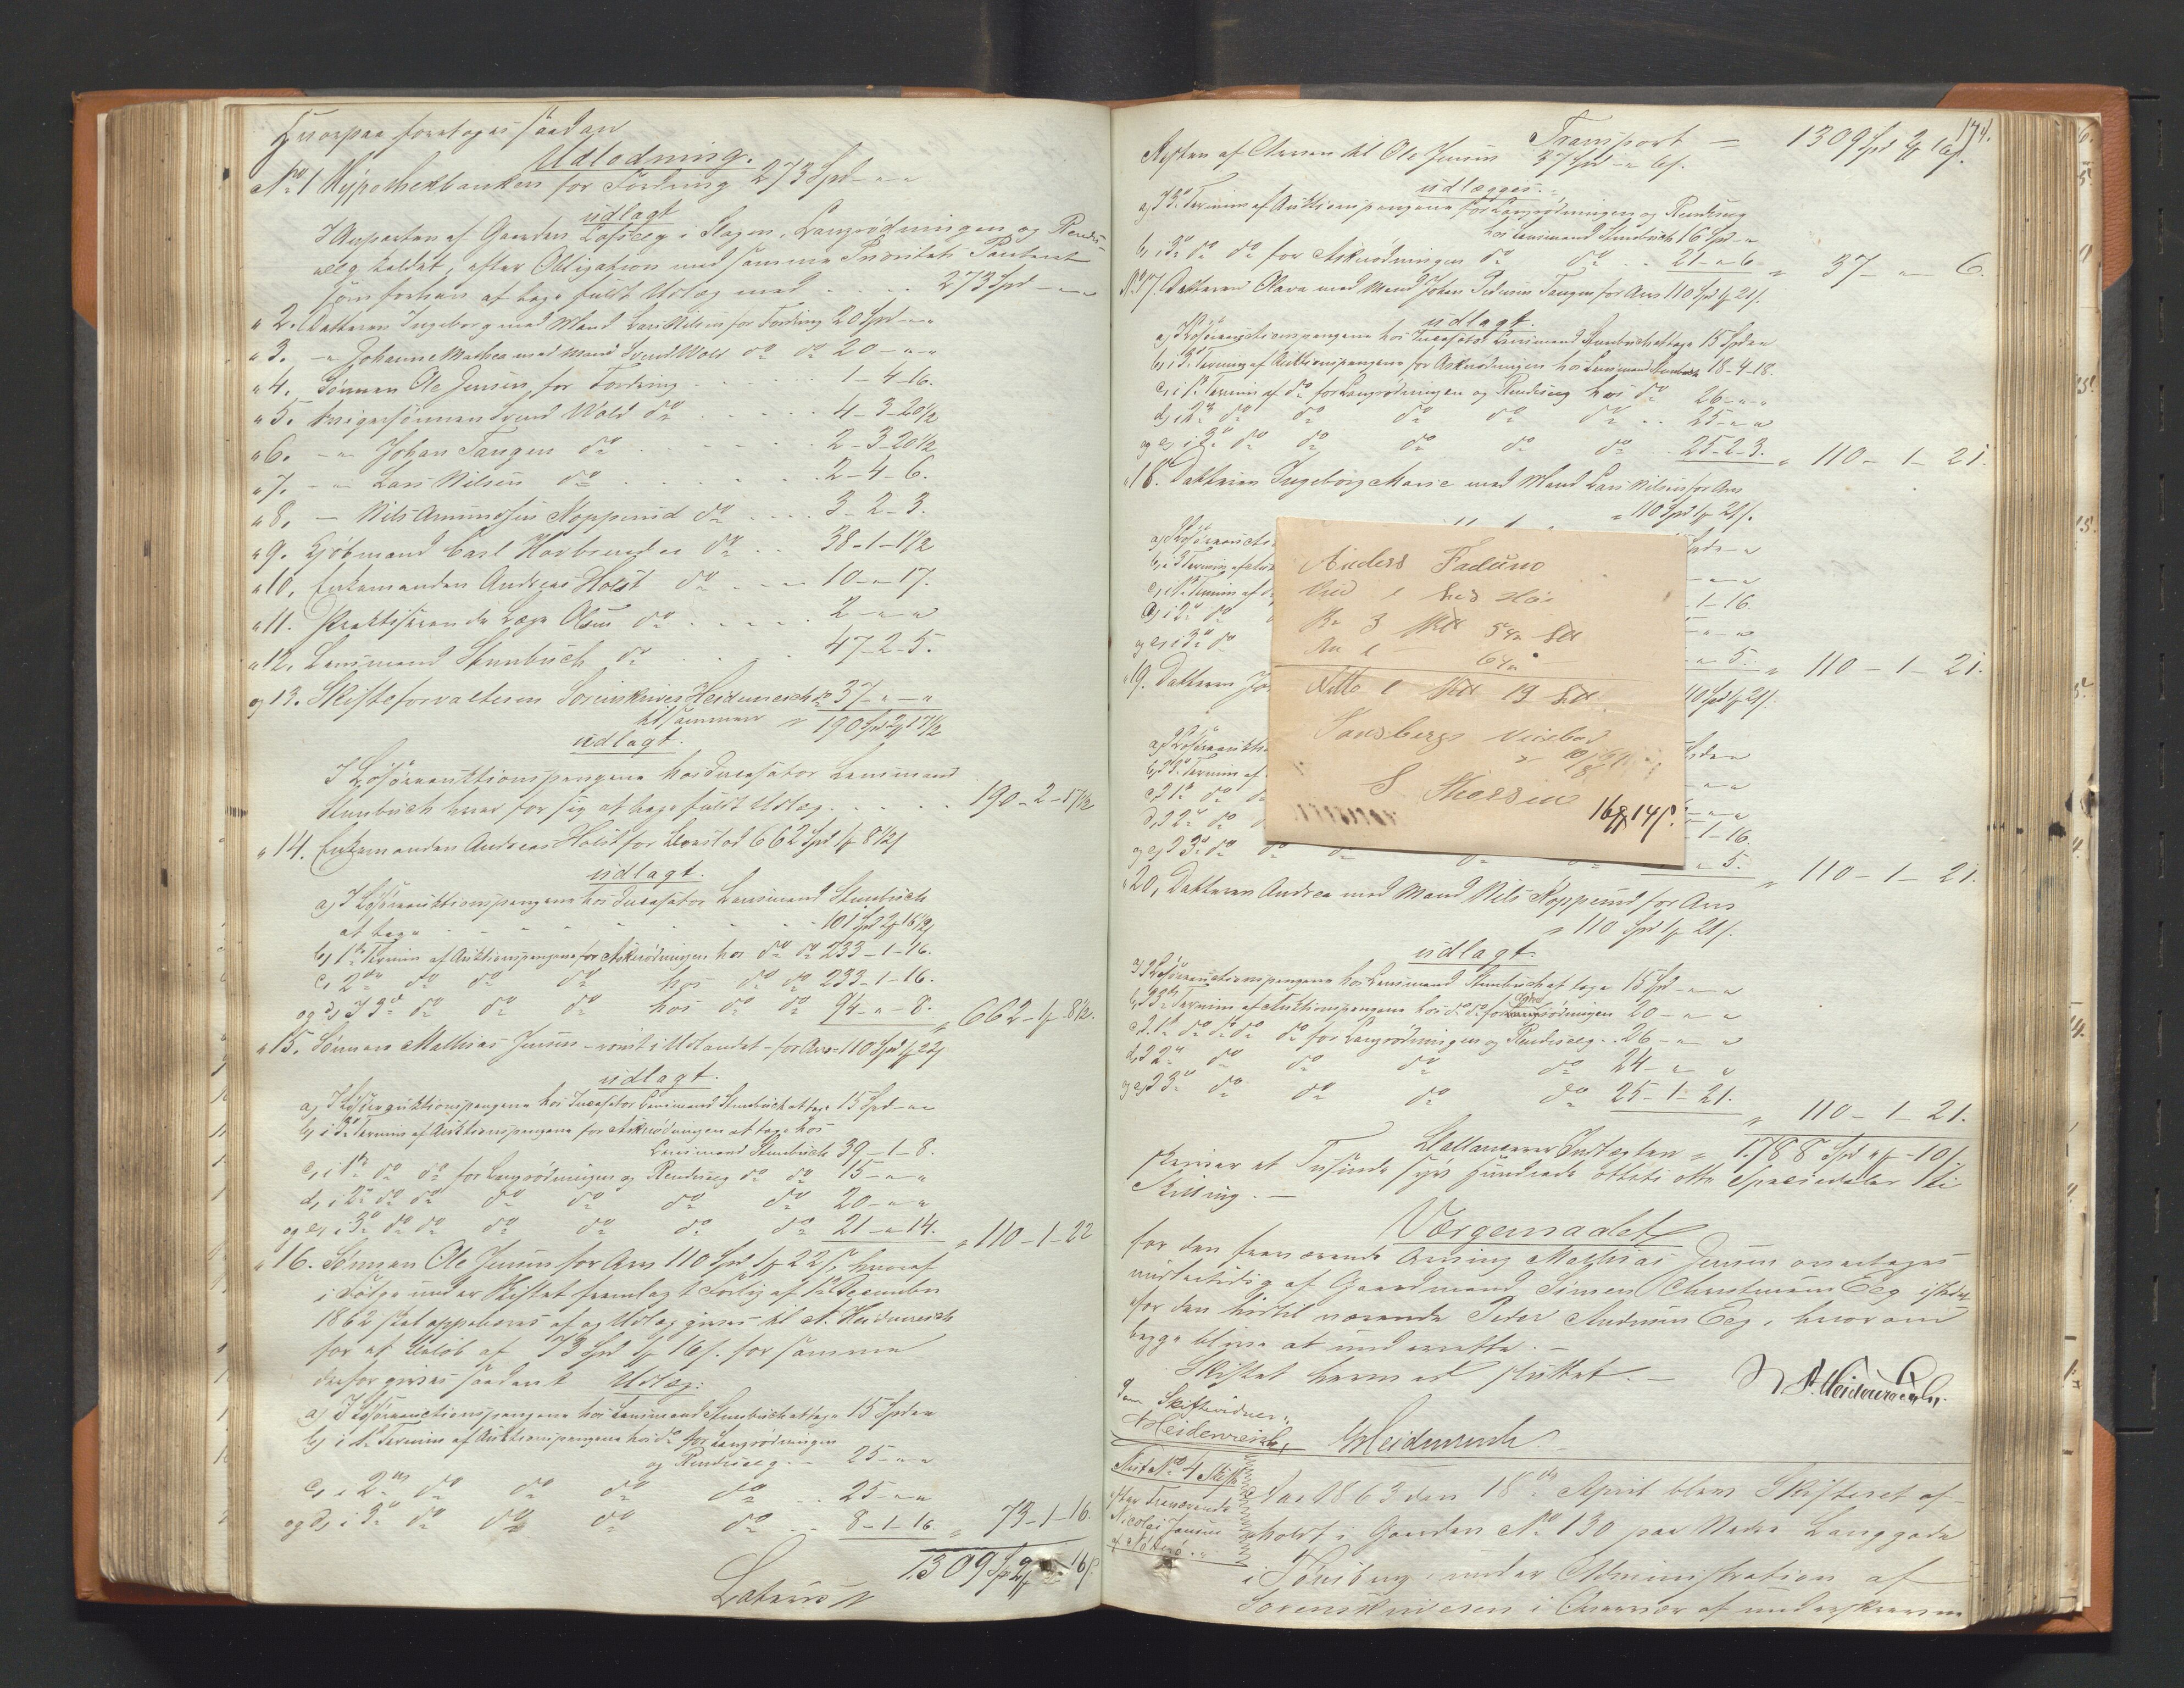 Hvorpaa foretoges saadan
Udlodning.
No 1 Hypothekbanken for Fordring 273 Spd - " - "
udlagt
I Anparten af Gaarden Løfseeg i Slagen, Langrødningen og Rends-
eeg kaldet, efter Obligation med samme Prioritets Panteret
som forhen at tage fuldt Udlæg med . . . . 273 Spd - " - "
" 2. Datteren Ingeborg med Mand Lars Nilsen for Fordring 20 Spd - " - "
" 3. - " Johanne Mathea med Mand Svend Wold do do 20 - " - "
" 4. Sønnen Ole Jensen, for Fordring . . . . 1 - 4 - 16.
" 5. Svigersønnen Svend Wold do . . . . 4 - 3 - 20½
" 6. - " Johan Tangen do . . . . 2 - 3 - 20½
" 7. - " Lars Nilsen do . . . . 2 - 4 - 6.
" 8. - Nils Amundsen Nopperud do . . . . 3 - 2 - 3.
" 9. Kjøbmand Carl do . . 38 - 1 - 1½
" 10. Enkemanden Andreas Holst do . . . 10 - " - 17.
" 11. Praktiserende Læge Olsen do . . . . 2 - " - "
" 12. Lensmand Stenbuch do . . . 47 - 2 - 5.
og 13. Skifteforvalteren Sorenskriver Heidenreich do 37 - " - "
tilsammen " 190 Spd 2 17½
udlagt.
I Løsøreauktionspengene hos Incasator Lensmand
Stenbuch hver for sig at tage fuldt Udlæg . . . . 190 - 2 - 17½
" 14. Enkemanden Andreas Holst for Boeslod 662 Spd 1 8½
udlagt.
a, I Løsøreauktionspengene hos Incasator Lensmand Stenbuch
at tage - - - - - 101 Spd 2 16½
b, 1ste Termin af Auktionspengene for Askerødningen hos do do 233 - 1 - 16.
c, 2den do do do hos do do 233 - 1 - 16.
og d, I 3die do do do hos do do 94 - " - 8. " 662 - 1 - 8½.
" 15. Sønnen Mathias Jensen - reist i Udlandet - for Arv - 110 Spd 1 22
udlagt.
a, I Løsøreauktionspengene hos Incasator Lensmand Stenbuch at tage 15 Spd - " - "
b, i 3die Termin af Auktionspengene for Askerødningen at tage hos
Lensmand Stenbuch 39 - 1 - 8.
c, i 1ste do do for Langrødningen og Rendseeg do do 15 - " - "
d, i 2den do do do do do do 20 - " - "
og e, i 3die do do do do do do 21 - " - 14. " 110 - 1 - 22
" 16. Sønnen Ole Jensen for Arv 110 Spd 1 22, hvoraf
i Følge under Skiftet fremlagt Forlig af 1ste December
1862 skal oppebæres af og Udlæg gives til A. Heidenreich
for et Beløb af 73 Spd 1 16. for samme
derfor gives saadant Udlæg:
a, I Løsøreauctionspengene hos Lensmand Stenbuch at tage 15 Spd - "
b, i 1ste Termin af Auktionspengene hos do for Langrødningen
og Rendseeg. - 25 - " - "
c, i 2den do do do do . . 25 - " - "
og d, i 3die do do do do . . 8 - 1 - 16. " 73 - 1 - 16.
Lateris " 1309 Spd 2 16
174.
Transport - 1309 Spd 2 16.
Resten af Arven til Ole Jensen 37 Spd - " 6.
udlægges. -
a, I 3die Termin af Auktionspengene for Langrødningen og Rendseeg
hos Lensmand Stenbuch 16 Spd - "
b, i 3die do do for Askerødningen do do . . 21 - " - 6. " 37 - " - 6.
No 17. Datteren Olava med Mand Johan Pedersen Tangen for Arv 110 Spd 1 21.
udlagt.
a, I Løsøreauctionspengene hos Incasator Lensmand Stenbuch at tage 15 Spd - "
b, i 3die Termin af Auktionspengene for Askerødningen hos Lensmand Stenbuch 18 - 4 - 18.
c, i 1ste Termin af do for Langrødningen og Rendseeg hos do 26 - " - "
d, i 2den do do do do do . . 25 - " - "
og e, i 3die do do do do do . . 25 - 2 - 3. " 110 - 1 - 21.
" 18. Datteren Ingeborg Marie med Mand Lars Nilsen for Arv
" 110 Spd 1 21.
a, I Løsøreaucti
b, i 3die Termin af
c, i 1ste Termin af - 1 - 16.
d, i 2den do
og e, i 3die do - " 5. " 110 - 1 - 21.
" 19. Datteren Jo 110 Spd 1 21.
a, I Løsøreaukti
b, I 3die Termin af
c, I 1ste do do
d, I 2den do do - 1 - 16.
og e, I 3die do do do do do - " 5. " 110 - 1 - 21.
Anders Fadum
Ved 1 Læs Hø
Br 3
Nto 1 19
Tønsbergs Veierbod
S
16 14
" 20. Datteren Andrea med Mand Nils Nopperud for Arv
" 110 Spd 1 21.
udlagt.
a, I Løsøreauctionspengene hos Lensmand Stenbuch at tage 15 Spd - " - "
b, I 3die Termin af Auktionspengene hos do do for Askerødningen 20 - " - "
c, I 1ste do do do do for Langrødningen og Rendseeg . . 26 - " - "
d, I 2den do do do do 24 - " - "
og e, I 3die do do do do 25 - 1 - 21. " 110 - 1 - 21.
Ballancerer Indtægten " 1788 Spd " 10
skriver et Tusinde syv hundrede ottiti otte Speciedaler, ti
Skilling. -
Værgemaalet
for den fraværende Arving Mathias Jensen overtages
midlertidig af Gaardmand Simen Christensen Eeg istedet-
for den hidtil værende Peder Andersen Eeg, hvorom
begge blive at underrette. -
Skiftet hermed sluttet. -
A. Heidenreich.
Som Skiftevidner:
Heidenreich, Heidenreich
No 4 Skifte
efter Fraværende
Nicolai Jensen
af Nøtterø.
Aar 1863 den 18de April blev Skifteret af-
holdt i Gaarden No 130 paa Nedre Langgade
i Tønsberg under Administration af
Sorenskriveren i Overvær af underskrevne